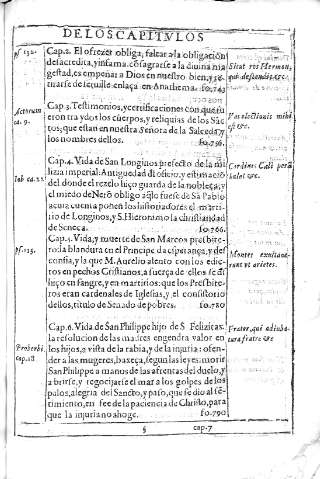 DE LOS CAPITVLOS
ps. 132.
Cap.2. El ofrezer obliga, faltar a la obligación
desacredita, y infama. cósagrarse a la diuina ma
gestad, es empeñar a Dios en nuestro bien, y
fo.743
Sicut ros Hermon,
qui descendit &c.
Actorum
ca. 9.
Cap.3. Testimonios, y certificaciones con que fue
ron traydos los cuerpos, y reliquias de los Sã
tos; que estan en nuestra Señora de la Salceda, y
los nombres dellos. fo.756.
Vas electionis mihi
est &c.
Iob ca.22
Cap.4. Vida de San Longinos prefecto de la mi
lizia imperial: Antiguedad dl oficio, y estimació
del donde el rezelo hizo guarda de la nobleça, y
el miedo de Nerõ obligo aq̃lo fuese de Sã Pablo
acuya cuenta ponen los historiadores el marti
rio de Longinos, y S. Hieronimo la christiandad
de Seneca. fo.766.
ps. 113.
Cap.5. Vida, y muerte de San Marcos presbite-
ro da blandura en el Principe da esperança, y des
confia, y la que M. Aurelio alento con los edic
tos en pechos Cristianos, a fuerça de ellos se di
hizo en sangre, y en martirios: que los Presbite-
ros eran cardenales de Iglesias, y el consistorio
dellos, titulo de Senado de pobres. fo.780
Montes exultaue-
runt vt arietes.
Prouerbi.
cap.18
Cap.6. Vida de San Philippe hijo de S. Felizitas.
la resolucion de las madres engendra valor en
los hijos, a vista de la rabia, y de la injuria: ofen-
der a las mugeres, baxeza, segun las leyes. morir
San Philippe a manos de las afrentas del duelo, y
a brirse, y regocijarse el mar a los golpes de los
palos, alegria del Sancto, y paso, que se dio al sé-
timiento, en fee de la paciencia de Christo, para
que la injuria no ahoge. fo.790
Frater, qui adiuba-
tur a fratre &c
§
cap.7